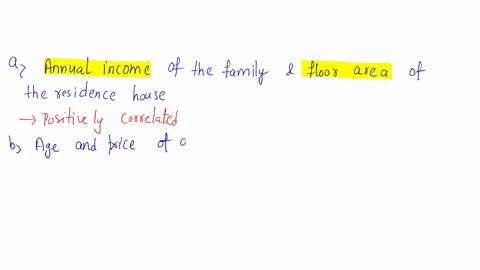 a) Annual income of the family & floor area of
the residence house
→ Positively correlated
b) Age and price of